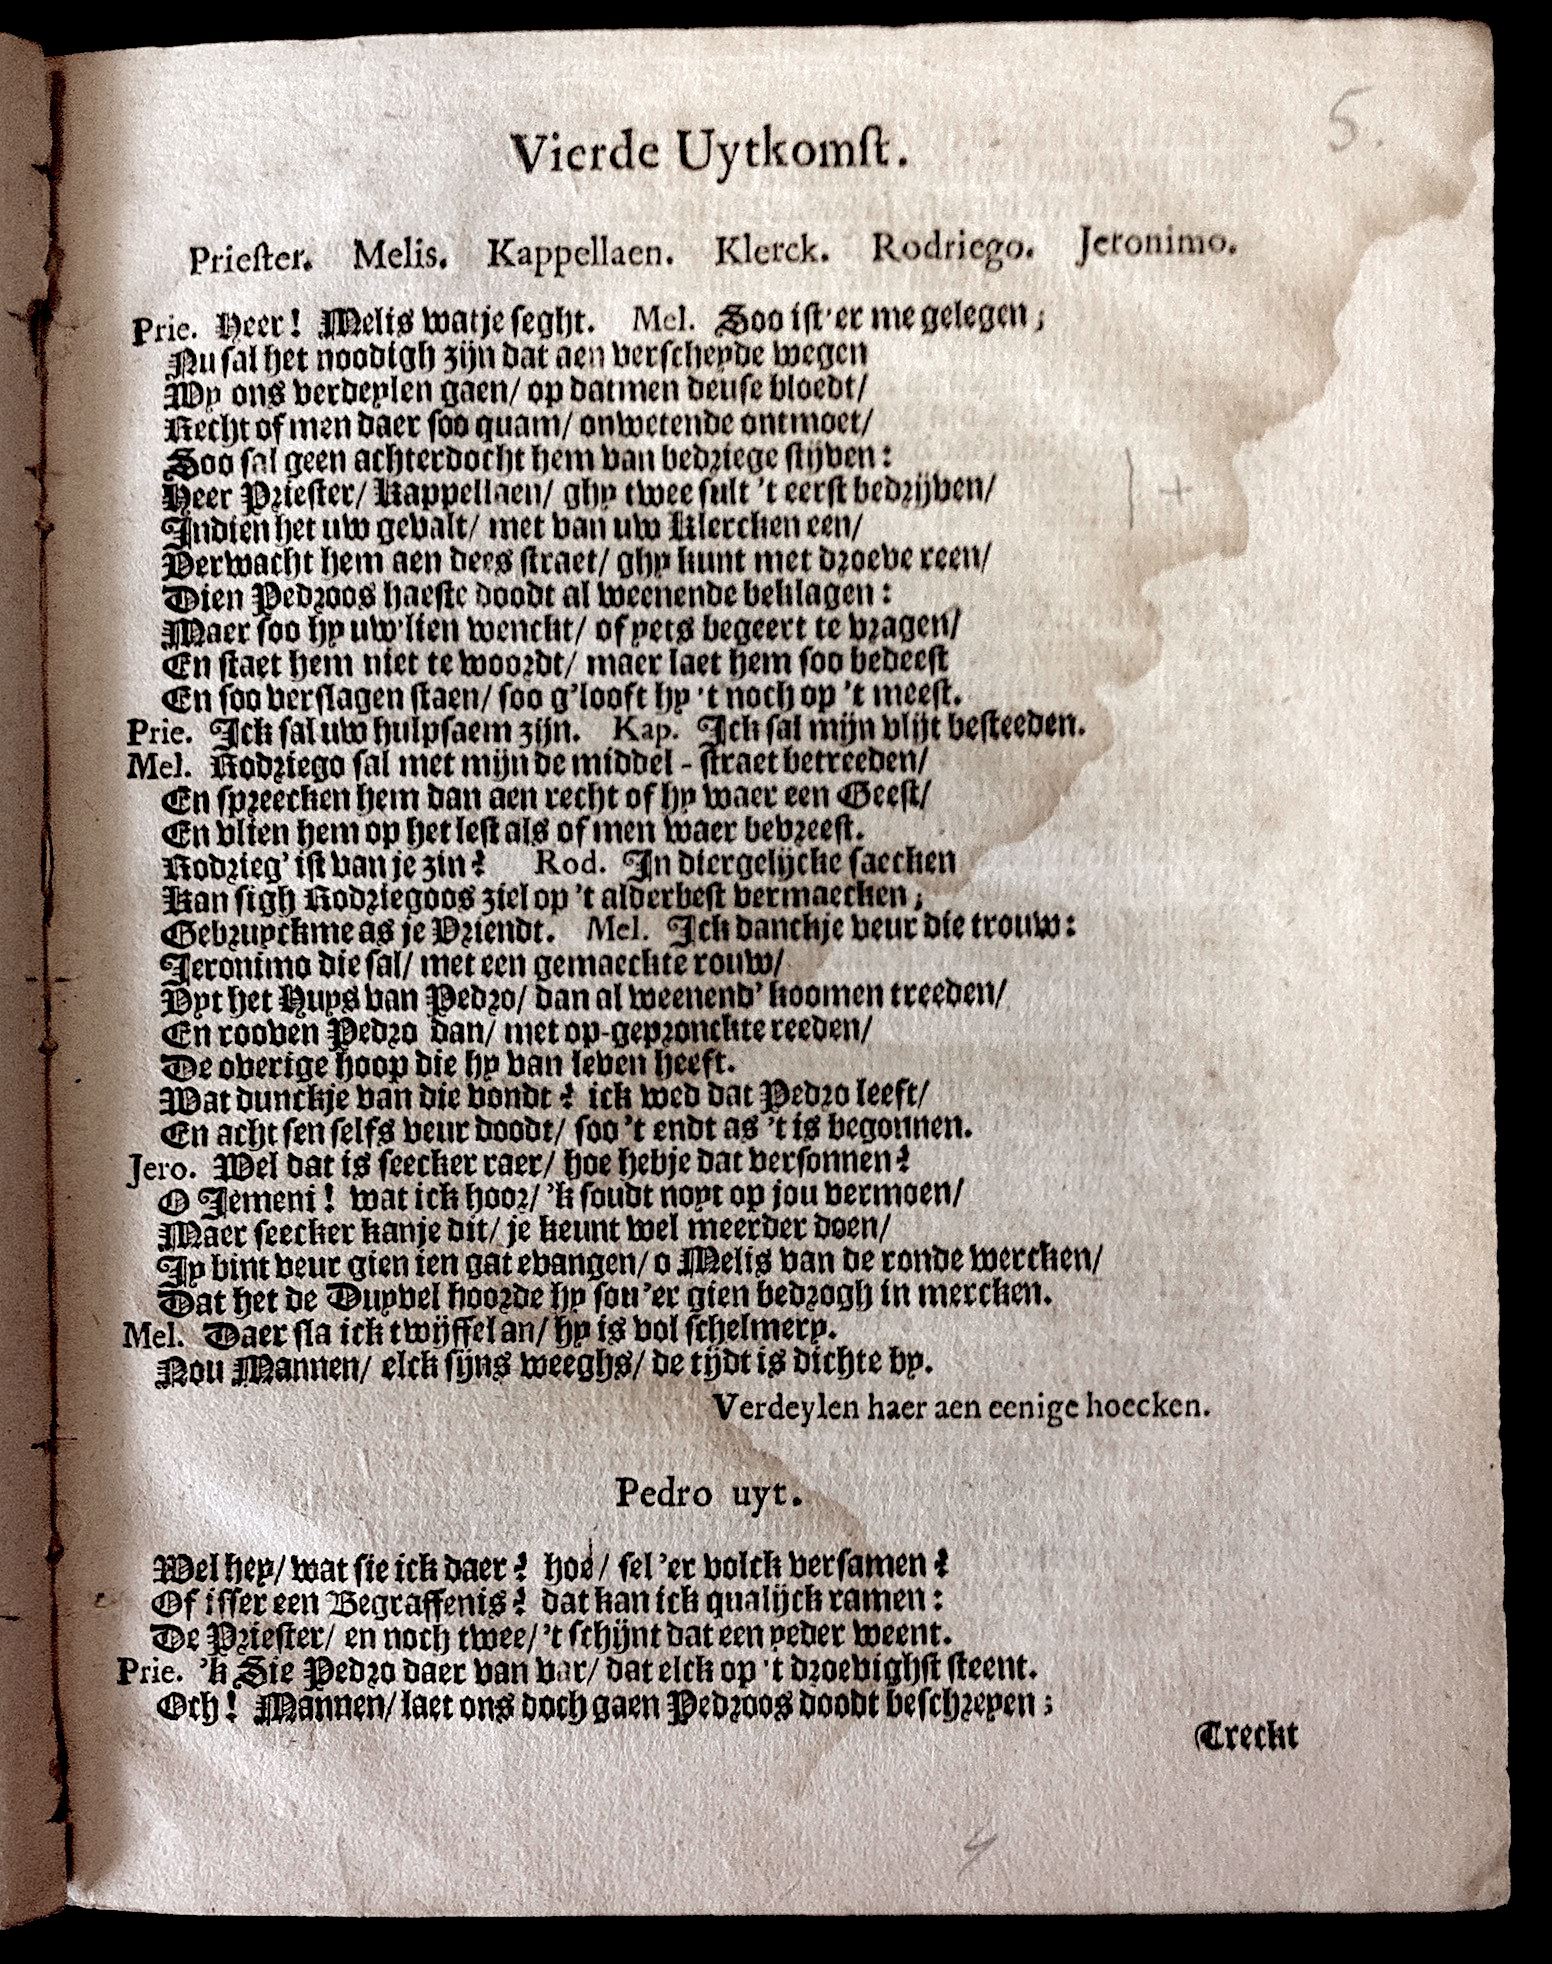 5.
Vierde Uytkomſt.
Prieſter. Melis. Kappellaen. Klerck. Rodriego. Jeronimo.
Prie. Heer! Melis watje ſeght. Mel. Soo iſt'er me gelegen;
Nu ſal het noodigh zijn dat aen verſcheyde wegen
Wy ons verdeylen gaen/ op datmen deuſe bloedt/
Recht of men daer ſoo quam/ onwetende ontmoet/
Soo ſal geen achterdocht hem van bedriege ſtijven:
Heer Prieſter/ Kappellaen/ ghy twee ſult 't eerſt bedrijven/
Indien het uw gevalt/ met van uw Klercken een/
Verwacht hem aen dees ſtraet/ ghy kunt met droeve reen/
Dien Pedroos haeſte doodt al weenende beklagen:
Maer ſoo hy uw'lien wenckt/ of yets begeert te vragen/
En ſtaet hem niet te woordt/ maer laet hem ſoo bedeeſt
En ſoo verſlagen ſtaen/ ſoo g'looft hy 't noch op 't meeſt.
Prie. Ick ſal uw hulpſaem zijn. Kap. Ick ſal mijn vlijt beſteeden.
Mel. Rodriego ſal met mijn de middel-ſtraet betreeden/
En ſpreecken hem dan aen recht of hy waer een Geeſt/
En vlien hem op het leſt als of men waer bevreeſt.
Rodrieg' iſt van je zin? Rod. In diergelijcke ſaecken
Kan ſigh Rodriegoos ziel op 't alderbeſt vermaecken;
Gebruyckme as je Vriendt. Mel. Ick danckje veur die trouw:
Jeronimo die ſal/ met een gemaeckte rouw/
Uyt het Huys van Pedro/ dan al weenend' koomen treeden/
En rooven Pedro dan/ met op-gepronckte reeden/
De overige hoop die hy van leven heeft.
Wat dunckje van die vondt? ick wed dat Pedro leeft/
En acht ſen ſelfs veur doodt/ ſoo 't endt as 't is begonnen.
Jero. Wel dat is ſeecker raer/ hoe hebje dat verſonnen?
O Jemeni! wat ick hoor/ 'k ſoudt noyt op jou vermoen/
Maer ſeecker kanje dit/ je keunt wel meerder doen/
Jy bint veur gien ien gat evangen/ o Melis van de ronde wercken/
Dat het de Duyvel hoorde hy ſou 'er gien bedrogh in mercken.
Mel. Daer ſla ick twijffel an/ hy is vol ſchelmery.
Nou Mannen/ elck ſijns weeghs/ de tijdt is dichte by.
Verdeylen haer aen eenige hoecken.
Pedro uyt.
Wel hey/ wat ſie ick daer? hoe/ ſel 'er volck verſamen?
Of iſſer een Begraffenis? dat kan ick qualijck ramen:
De Prieſter/ en noch twee/ 't ſchijnt dat een yeder weent.
Prie. 'k Sie Pedro daer van var/ dat elck op 't droevighſt ſteent.
Och! Mannen/ laet ons doch gaen Pedroos doodt beſchreyen;
Treckt